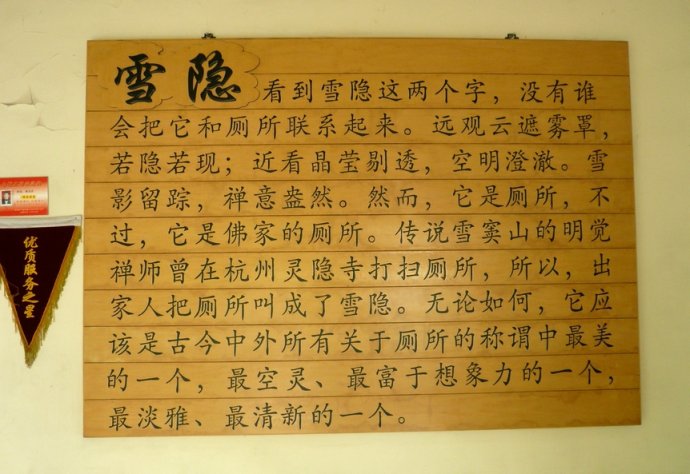 雪隐看到雪隐这两个字，没有谁
会把它和厕所联系起来。远观云遮雾罩，
若隐若现；近看晶莹剔透，空明澄澈。雪
影留踪，禅意盎然。然而，它是厕所，不
过，它是佛家的厕所。传说雪窦山的明觉
禅师曾在杭州灵隐寺打扫厕所，所以，出
家人把厕所叫成了雪隐。无论如何，它应
该是古今中外所有关于厕所的称谓中最美
的一个，最空灵、最富于想象力的一个，
最淡雅、最清新的一个。
优质服务之星